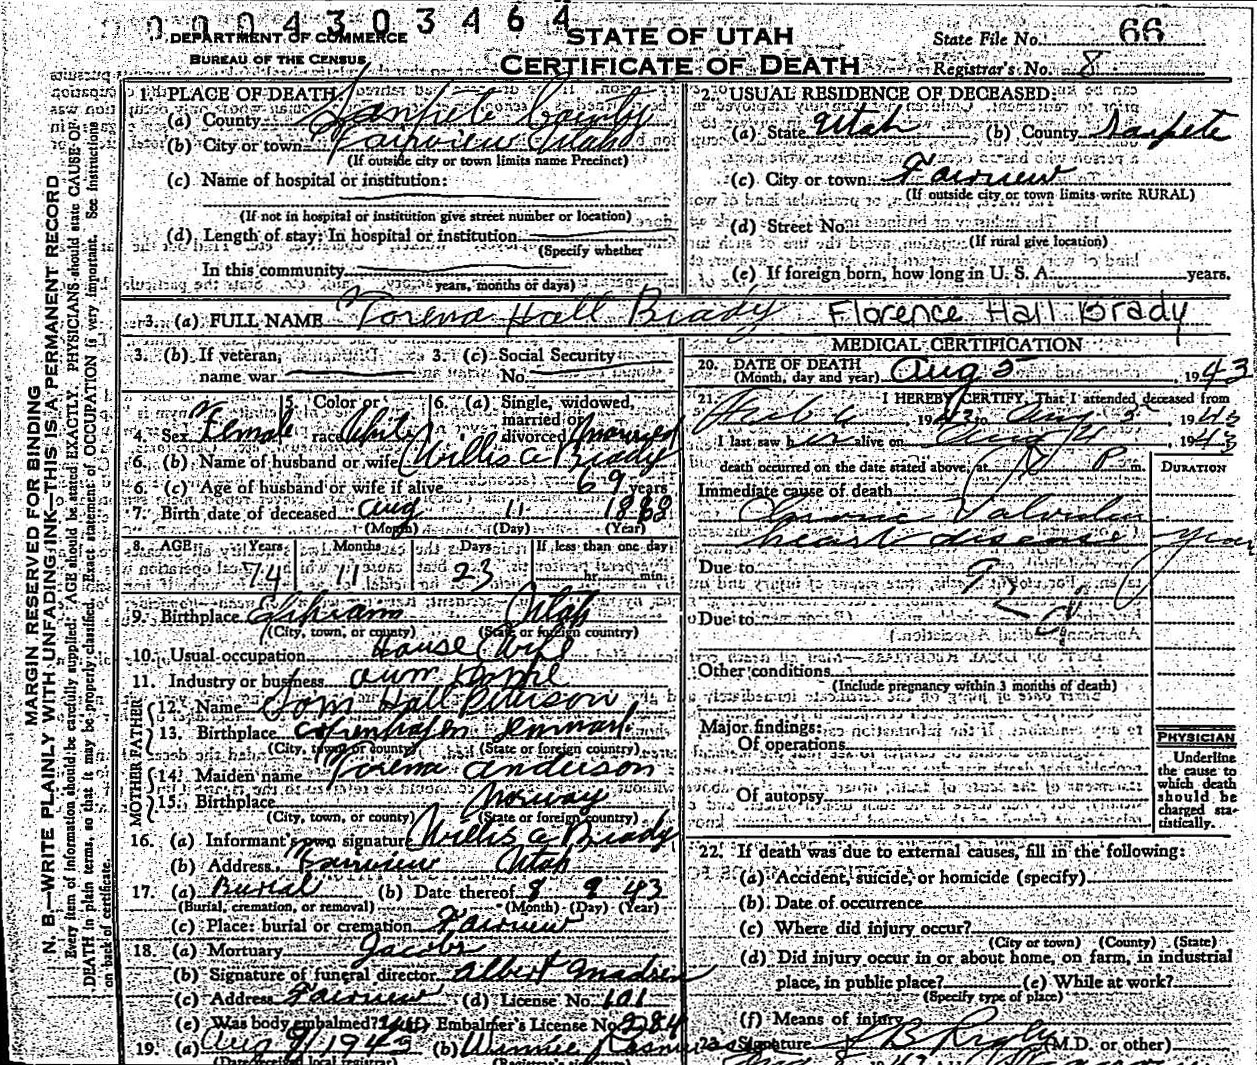 0004303464
DEPARTMENT OF COMMERCE
BUREAU OF THE CENSUS
STATE OF UTAH
CERTIFICATE OF DEATH
State File No. 66
Registrar's No. 8
MARGIN RESERVED FOR BINDING
N. B.—WRITE PLAINLY WITH UNFADING INK—THIS IS A PERMANENT RECORD
Every item of information should be carefully supplied. AGE should be stated EXACTLY. PHYSICIANS should state CAUSE OF
DEATH in plain terms, so that it may be properly classified. Exact statement of OCCUPATION is very important. See instructions
on back of certificate.
1. PLACE OF DEATH
(a) County Sanpete County
(b) City or town Fairview Utah
(If outside city or town limits name Precinct)
(c) Name of hospital or institution:
(If not in hospital or institution give street number or location)
(d) Length of stay: In hospital or institution
(Specify whether
In this community
years, months or days)
2. USUAL RESIDENCE OF DECEASED:
(a) State Utah (b) County Sanpete
(c) City or town Fairview
(If outside city or town limits write RURAL)
(d) Street No.
(If rural give location)
(e) If foreign born, how long in U. S. A. years.
3. (a) FULL NAME Torena Hall Brady Florence Hall Brady
3. (b) If veteran, name war
3. (c) Social Security No.
4. Sex Female
5. Color or race White
6. (a) Single, widowed, married or divorced married
6. (b) Name of husband or wife Willis a Brady
6. (c) Age of husband or wife if alive 69 years
7. Birth date of deceased Aug 11 1868
(Month) (Day) (Year)
8. AGE: Years Months Days If less than one day
74 11 23 hr. min.
9. Birthplace Ephraim Utah
(City, town, or county) (State or foreign country)
10. Usual occupation House Wife
11. Industry or business own home
FATHER
12. Name Tom Hall
13. Birthplace Copenhagen Denmark
(City, town or county) (State or foreign country)
MOTHER
14. Maiden name Torena Anderson
15. Birthplace Norway
(City, town, or county) (State or foreign country)
16. (a) Informant's own signature Willis a Brady
(b) Address Fairview Utah
17. (a) Burial (b) Date thereof 8 9 43
(Burial, cremation, or removal) (Month) (Day) (Year)
(c) Place: burial or cremation Fairview
18. (a) Mortuary Jacobs
(b) Signature of funeral director Albert Madsen
(c) Address Fairview (d) License No. 101
(e) Was body embalmed? yes (f) Embalmer's License No. 2284
19. (a) Aug 9/1943 (b) Winnie Rasmussen
(Date received local registrar) (Registrar's signature)
MEDICAL CERTIFICATION
20. DATE OF DEATH
(Month, day and year) Aug 5, 1943
21. I HEREBY CERTIFY, That I attended deceased from
Feb 6 1943 to Aug 5 1943
I last saw her alive on Aug 4 1943
death occurred on the date stated above, at P m.
DURATION
Immediate cause of death
Chronic Valvular
heart disease year
Due to
Due to
Other conditions
(Include pregnancy within 3 months of death)
Major findings:
Of operations
Of autopsy
PHYSICIAN
Underline
the cause to
which death
should be
charged sta-
tistically.
22. If death was due to external causes, fill in the following:
(a) Accident, suicide, or homicide (specify)
(b) Date of occurrence
(c) Where did injury occur?
(City or town) (County) (State)
(d) Did injury occur in or about home, on farm, in industrial
place, in public place? (e) While at work?
(Specify type of place)
(f) Means of injury
23. Signature Rigby (M.D. or other)